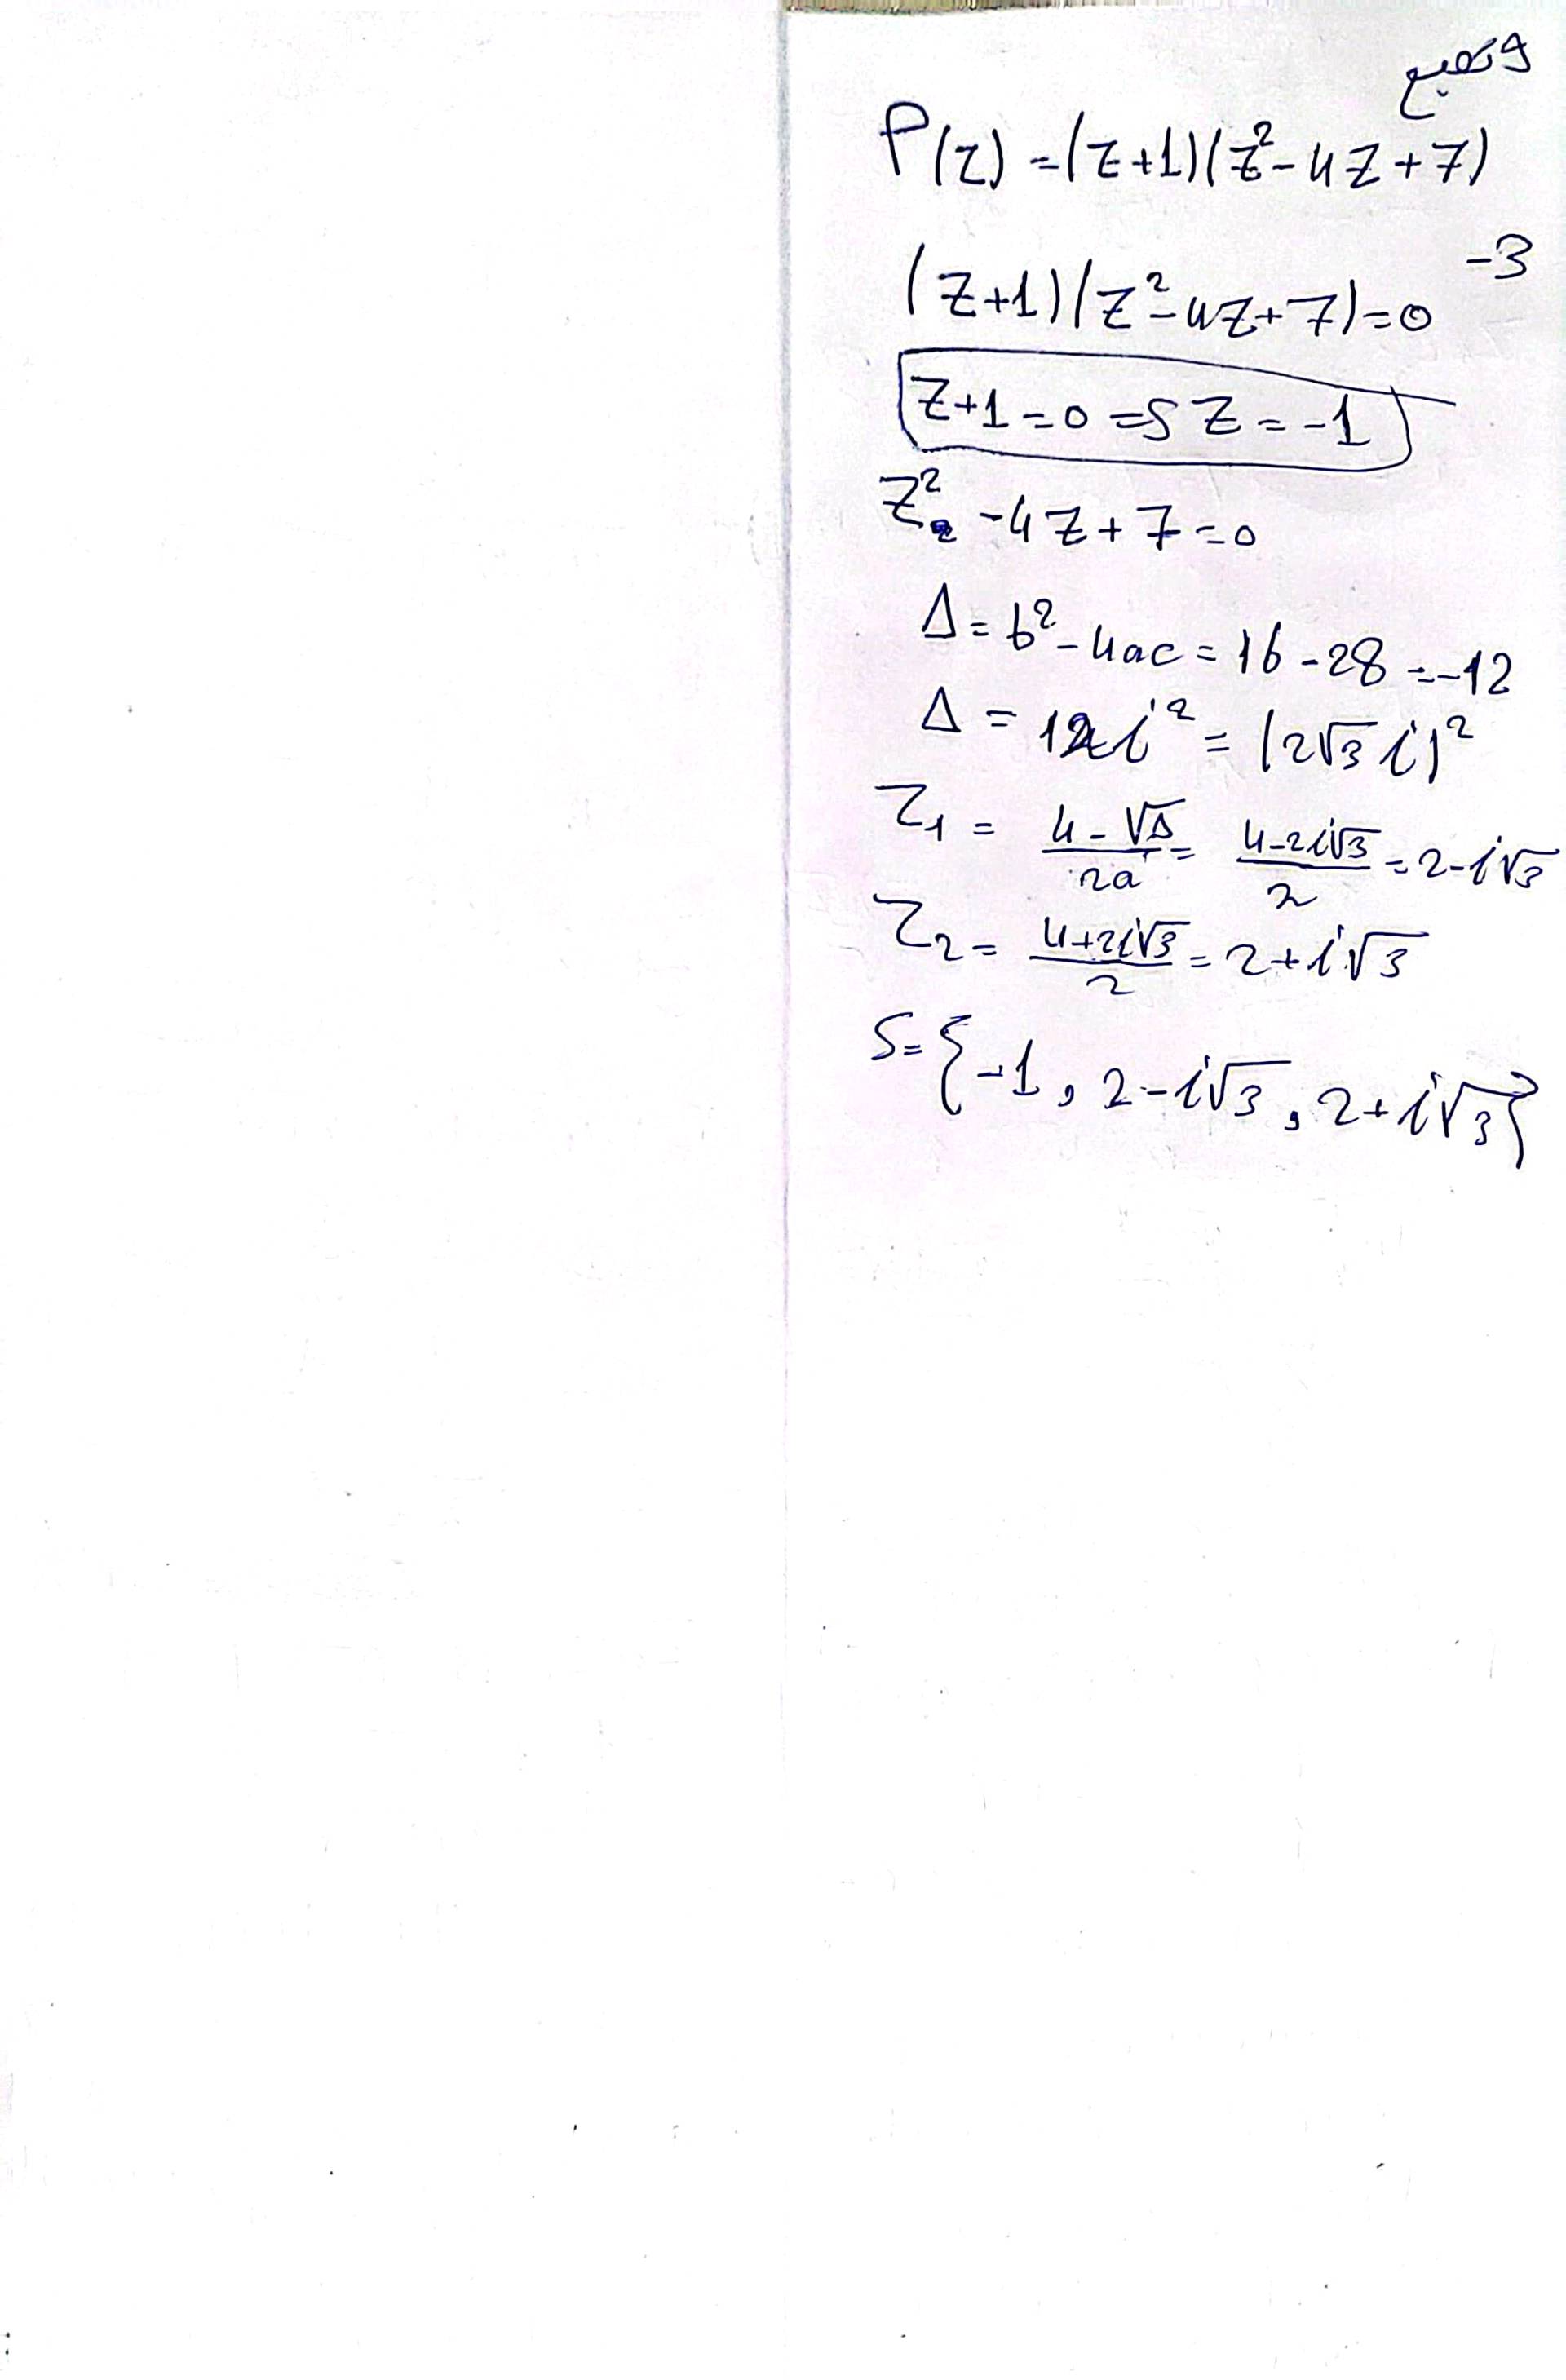 وتصبح
P(z) = (z+1)(z²-4z+7)
-3
(z+1)(z²-4z+7)=0
z+1=0 => z=-1
z²-4z+7=0
Δ=b²-4ac=16-28=-12
Δ=12i²=(2√3 i)²
z₁ = (4-√Δ)/2a = (4-2i√3)/2 = 2-i√3
z₂ = (4+2i√3)/2 = 2+i√3
S={-1, 2-i√3, 2+i√3}